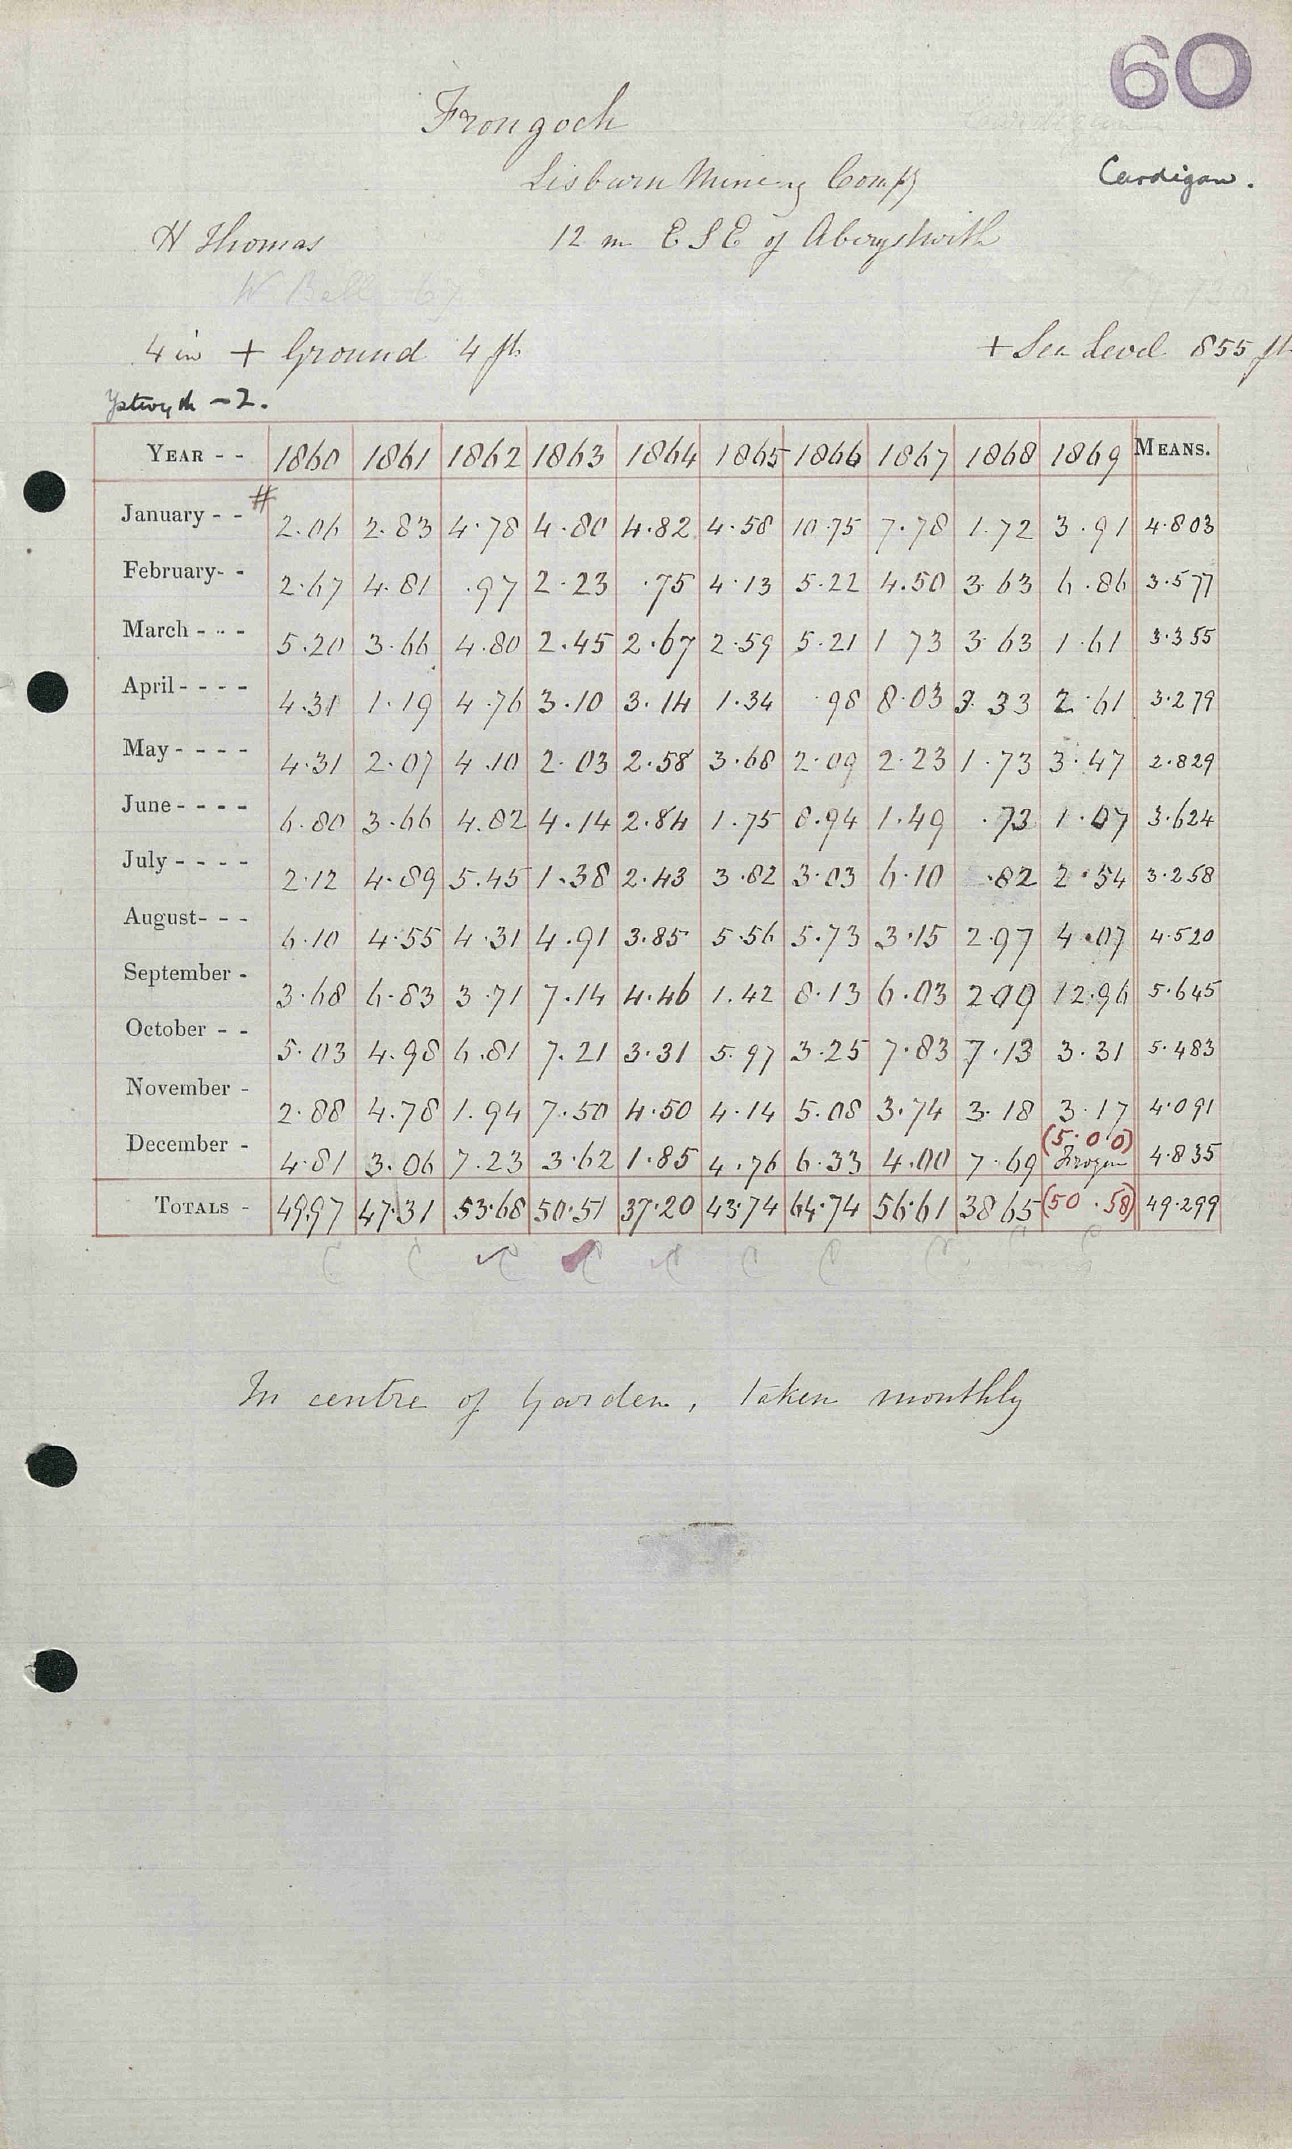 60
Frongoch
Cardigan.
Lisburn Mining Compy
H Thomas 12 m E S E of Aberystwith
W Bell 67
4 in + Ground 4 ft + Sea Level 855 ft
Ystwyth - 2.
YEAR - - 1860 1861 1862 1863 1864 1865 1866 1867 1868 1869 MEANS.
January - - # 2.06 2.83 4.78 4.80 4.82 4.58 10.75 7.78 1.72 3.91 4.803
February- - 2.67 4.81 .97 2.23 .75 4.13 5.22 4.50 3.63 6.86 3.577
March - - - 5.20 3.66 4.80 2.45 2.67 2.59 5.21 1 73 3.63 1.61 3.355
April - - - - 4.31 1.19 4.76 3.10 3.14 1.34 .98 8.03 3.33 2.61 3.279
May - - - - 4.31 2.07 4.10 2.03 2.58 3.68 2.09 2.23 1.73 3.47 2.829
June - - - - 6.80 3.66 4.82 4.14 2.84 1.75 8.94 1.49 .73 1.07 3.624
July - - - - 2.12 4.89 5.45 1.38 2.43 3.82 3.03 6.10 .82 2.54 3.258
August- - - 6.10 4.55 4.31 4.91 3.85 5.56 5.73 3.15 2.97 4.07 4.520
September - 3.68 6.83 3.71 7.14 4.46 1.42 8.13 6.03 209 12.96 5.645
October - - 5.03 4.98 6.81 7.21 3.31 5.97 3.25 7.83 7.13 3.31 5.483
November - 2.88 4.78 1.94 7.50 4.50 4.14 5.08 3.74 3.18 3.17 4.091
December - 4.81 3.06 7.23 3.62 1.85 4.76 6.33 4.00 7.69 (5.00) Frozen 4.835
TOTALS - 49.97 47.31 53.68 50.51 37.20 43.74 64.74 56.61 38.65 (50.58) 49.299
C C C C C C C C C C
In centre of Garden, taken monthly